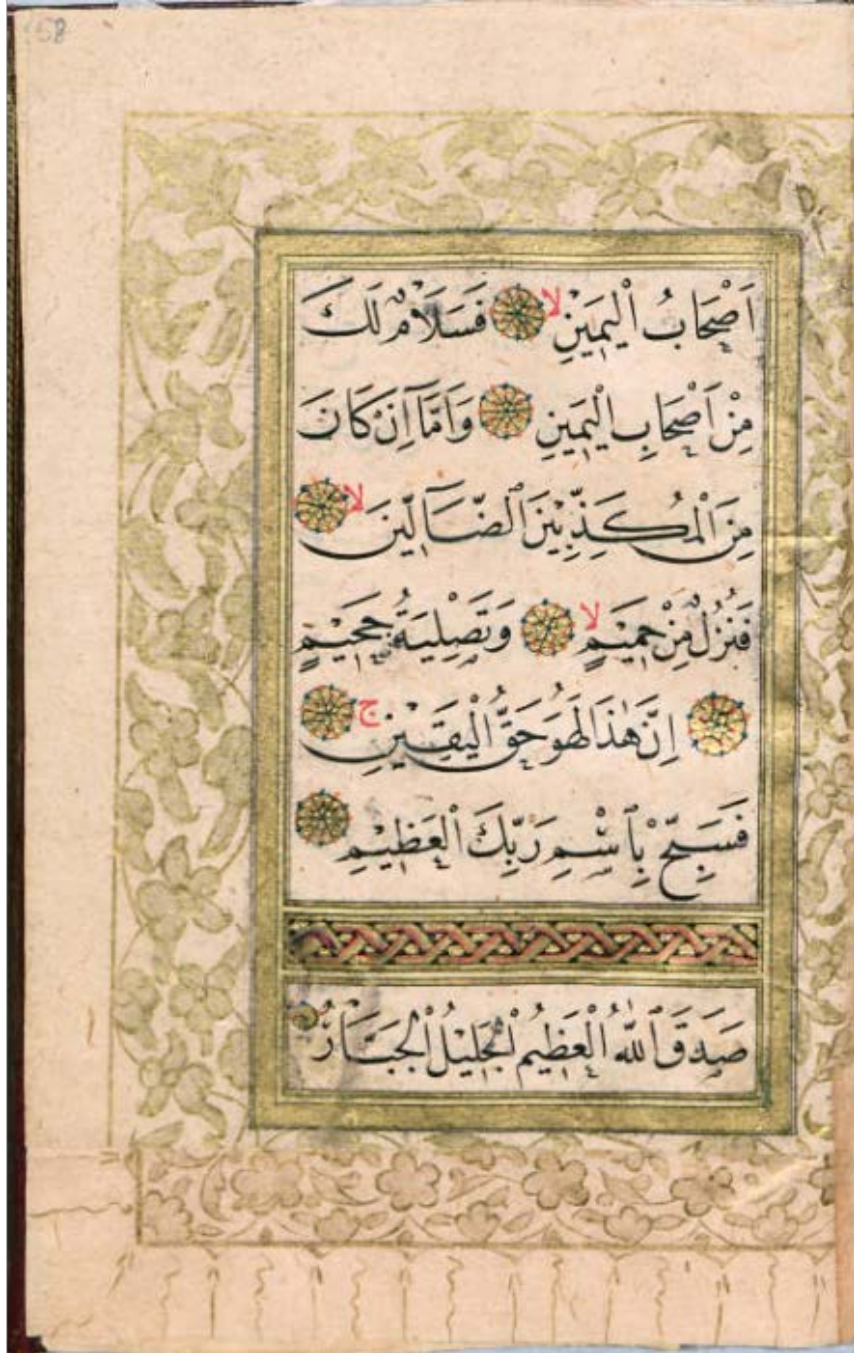 158
اَصْحَابُ الْيَمِينِ لا فَسَلَامٌ لَكَ
مِنْ اَصْحَابِ الْيَمِينِ وَاَمَّآ اِنْ كَانَ
مِنَ الْمُكَذِّبِينَ الضَّآلِّينَ لا
فَنُزُلٌ مِنْ حَمِيمٍ لا وَتَصْلِيَةُ جَحِيمٍ
اِنَّ هٰذَا لَهُوَ حَقُّ الْيَقِينِ ج
فَسَبِّحْ بِٱسْمِ رَبِّكَ الْعَظِيمِ
صَدَقَ ٱللّٰهُ الْعَظِيمُ الْجَلِيلُ الْجَبَّارُ